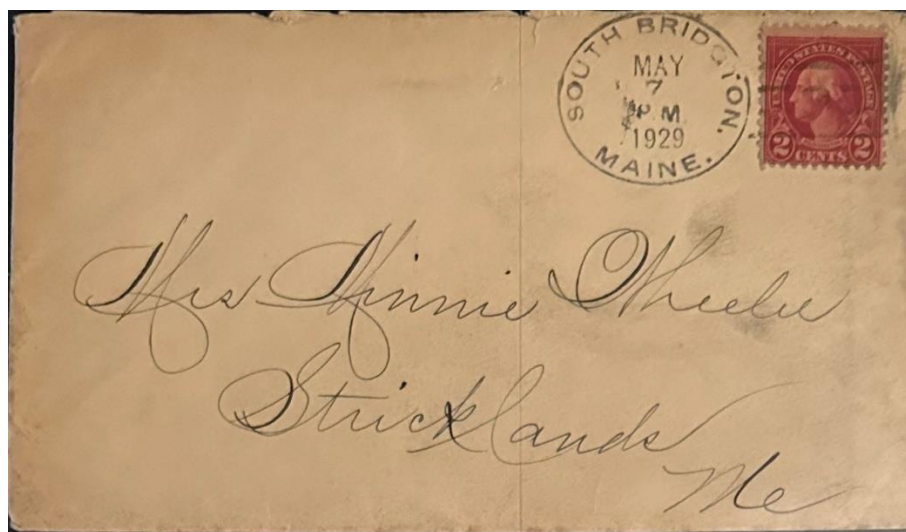 SOUTH BRIDGTON,
MAY
7
P.M.
1929
MAINE.
UNITED STATES POSTAGE
2 CENTS 2
Mrs Minnie Wheeler
Stricklands
Me